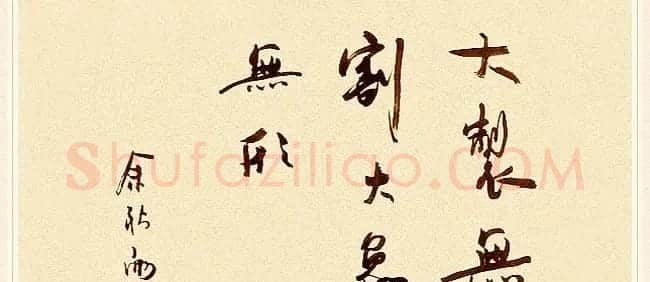 大製無
割大象
無形
余秋雨
Shufaziliao.COM